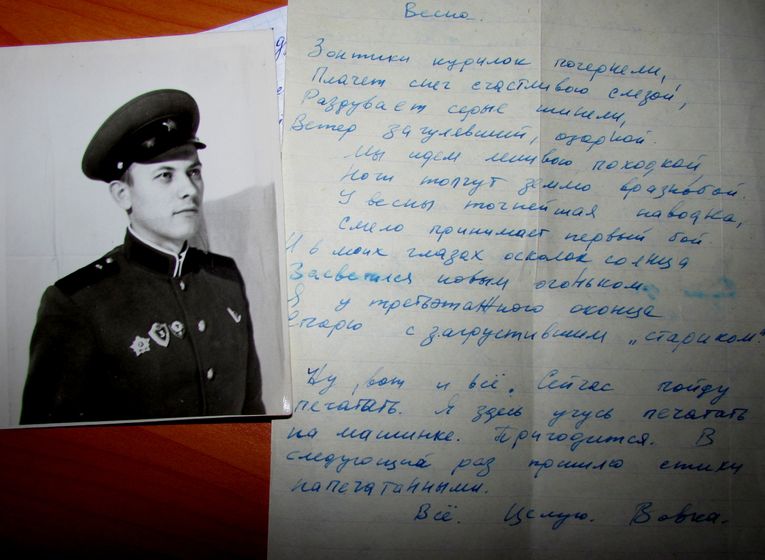 Весна.
Зонтики курилок почернели,
Плачет снег счастливою слезой,
Раздувает серые шинели,
Ветер загулявший, озорной.
Мы идем ленивою походкой
Ноги топчут землю вразнобой.
У весны точнейшая наводка,
Смело принимает первый бой
И в моих глазах осколок солнца
Засветился новым огоньком.
Я у третьэтажного оконца
с загрустившим „стариком"
Ну, вот и всё. Сейчас пойду
печатать. Я здесь учусь печатать
на машинке. Пригодится. В
следующий раз пришлю стихи
напечатанными.
Всё. Целую. Вовка.